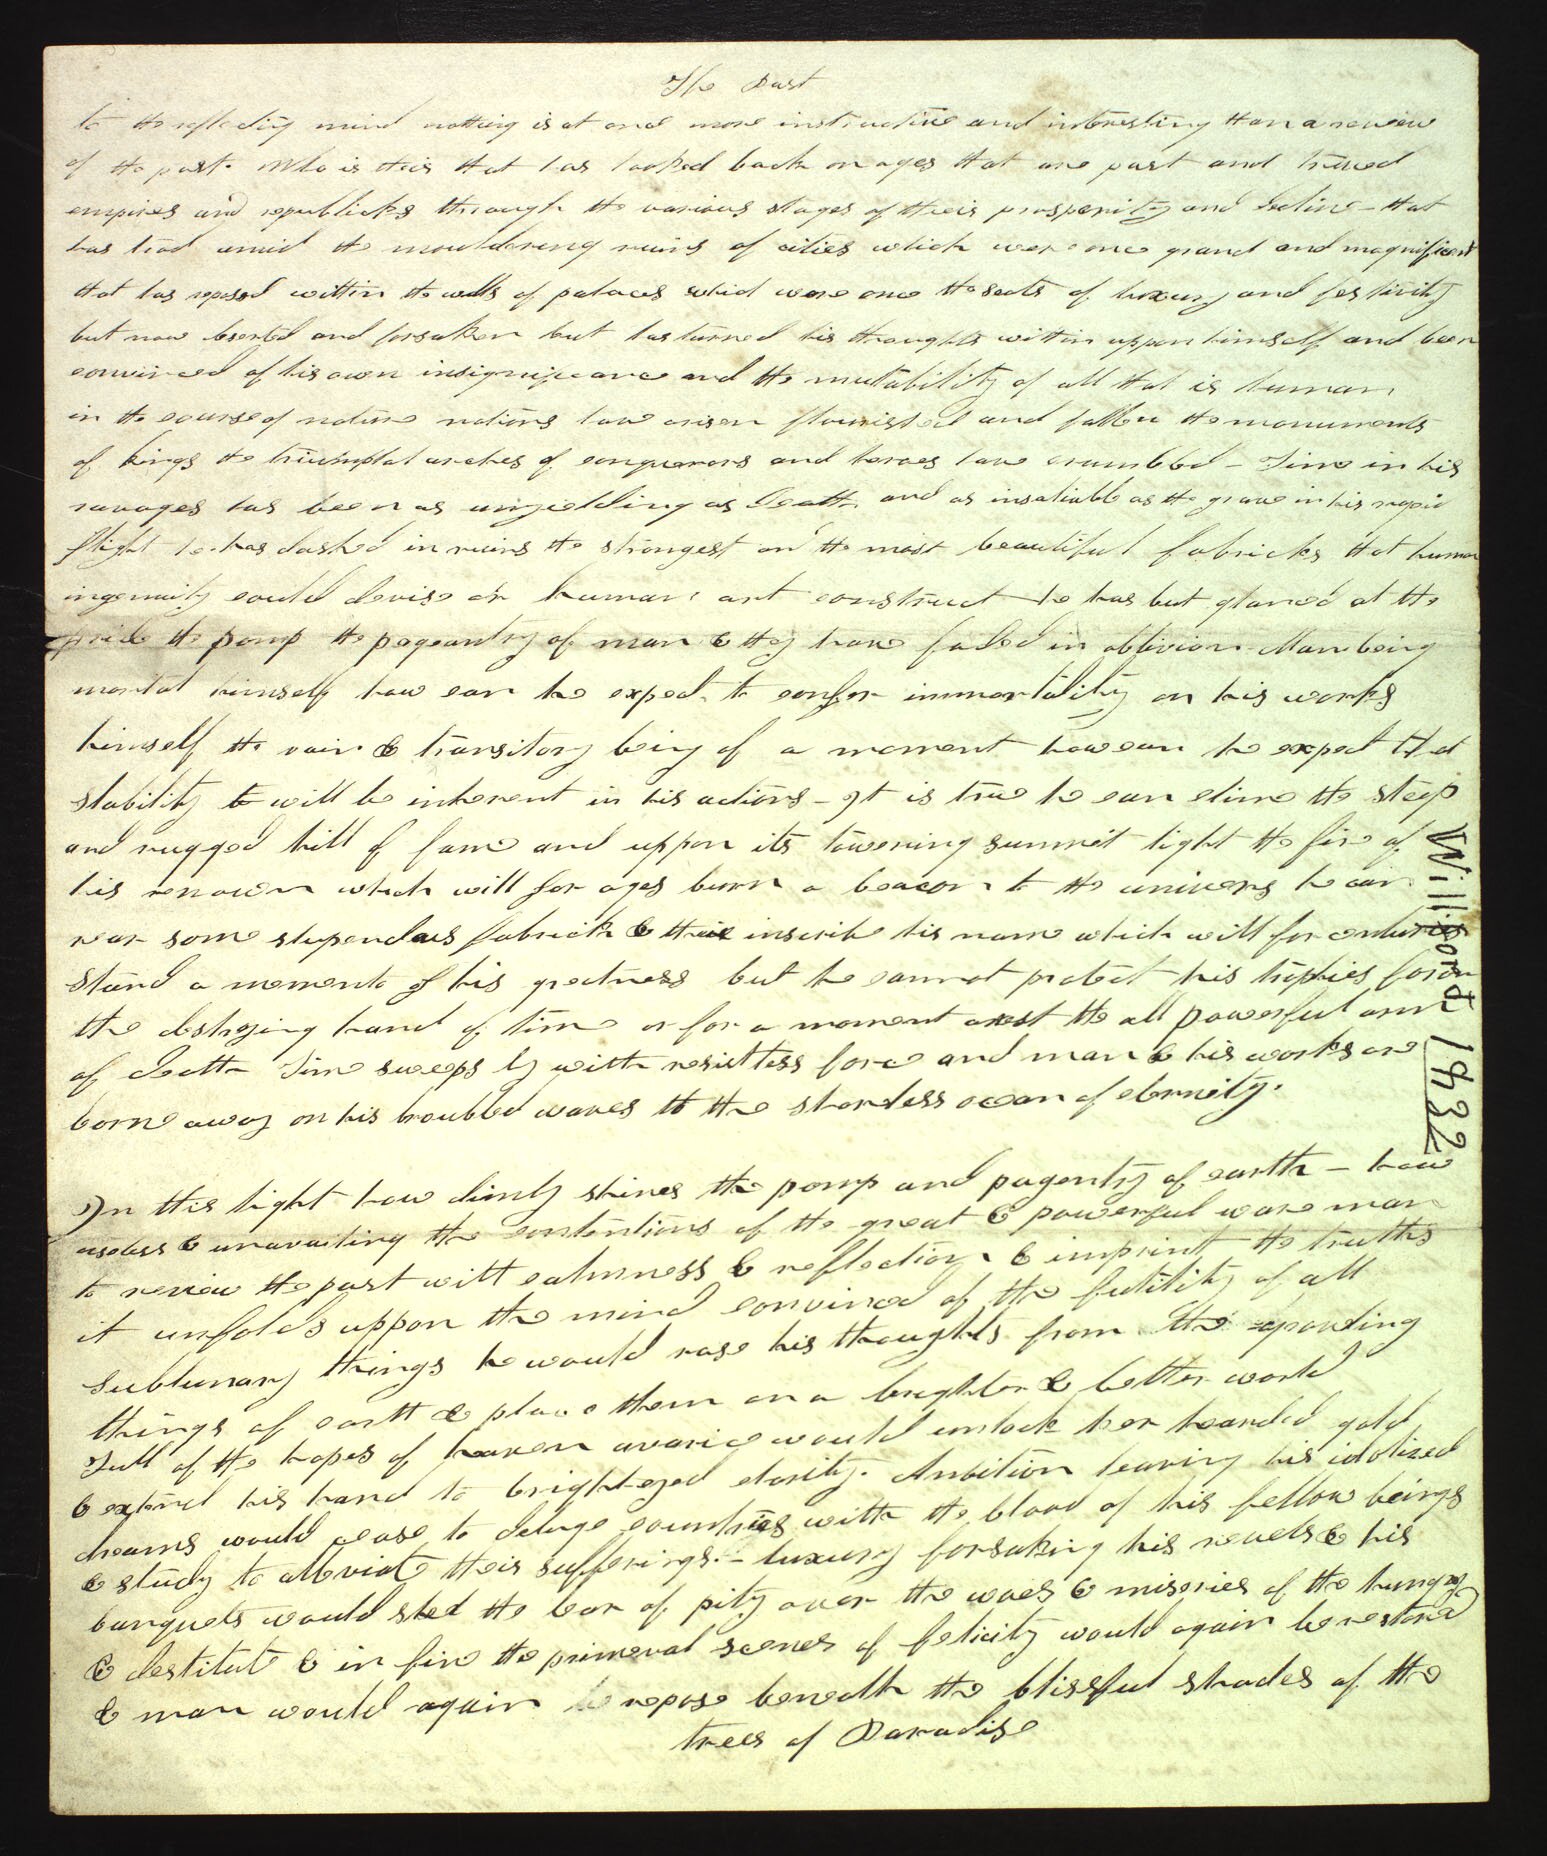 The Past
to the reflecting mind nothing is at once more instructive and interesting than a review
of the past. Who is theis that has looked back on ages that are past and traced
empires and republicks through the various stages of theis prosperity and decline - that
has trod amid the mouldering ruins of cities which were once grand and magnificent
that has reposed within the walls of palaces which were once the seats of luxury and festivity
but now deserted and forsaken but has turned his thoughts within uppon himself and been
convinced of his own insignificance and the mutability of all that is human
in the course of nature nations have arisen flourished and fallen the monuments
of kings the triumphal arches of conquerors and heroes have crumbled - Time in his
ravages has been as unyielding as Death and as insatiable as the grave in his rapid
flight he has dashed in ruins the strongest and the most beautiful fabricks that human
ingenuity could devise or human art construct he has but glanced at the
pride the pomp the pageantry of man & they have faded in oblivion Man being
mortal himself how can he expect to confer immortality on his works
himself the vain & transitory being of a moment how can he expect that
stability to will be inherent in his actions - It is true he can clime the steep
and rugged hill of fame and uppon its towering summit light the fire of
his renown which will for ages burn a beacon to the univers he can
rear some stupendous fabrick & there inscribe his name which will for centuries
stand a memento of his greatness but he cannot protect his trophies from
the destroying hand of time or for a moment arrest the all powerful arm
of death Time sweeps by with resistless force and man & his works are
borne away on his troubled waves to the shoreless ocean of eternity.
In this light how dimly shines the pomp and pagentry of earth - how
useless & unavailing the contentions of the great & powerful ware man
to review the past with calmness & reflection & imprint the truths
it unfolds uppon the mind convinced of the futility of all
sublunary things he would rase his thoughts from the groveling
things of earth & place them on a brighter & better world
Full of the hopes of heaven avarice would unlock her hoarded gold
& extend his hand to bright-eyed charity. Ambition leaving his idolized
dreams would cease to deluge countries with the blood of his fellow beings
& study to alleviate theis sufferings. - luxury forsaking his revels & his
banquets would shed the tear of pity over the woes & miseries of the hungry
& destitute & in fine the primeval scenes of felicity would again be restored
& man would again repose beneath the blissful shades of the
trees of Paradise
Williford 1832